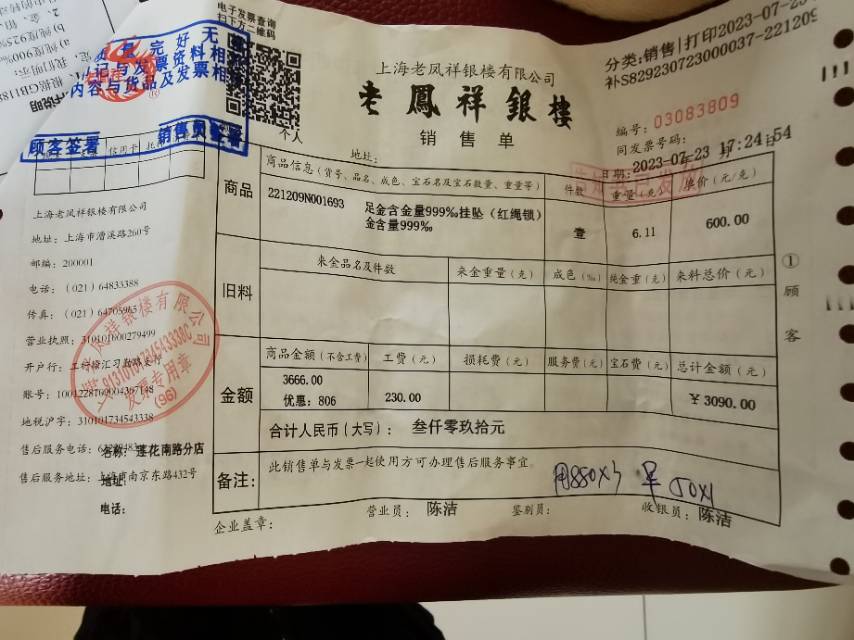 电子发票查询
扫下方二维码
个人
分类:销售|打印2023-07-23
补S829230723000037-221209
上海老凤祥银楼有限公司
老鳳祥銀樓
销售单
编号: 03083809
同发票号码:
地址:
日期: 2023-07-23 17:24:54
完好无
内容与货品及发票相
顾客签署
销售员签署
商品
商品信息(货号、品名、成色、宝石名及宝石数量、重量等)
件数
重量(克)
单价(元/克)
221209N001693
足金含金量999‰挂坠(红绳锁)
金含量999‰
壹
6.11
600.00
旧料
来金品名及件数
来金重量(克)
成色(‰)
纯金重(克)
来料总价(元)
金额
商品金额(不含工费)
工费(元)
损耗费(元)
服务费(元)
宝石费(元)
总计金额(元)
3666.00
优惠: 806
230.00
¥3090.00
合计人民币(大写): 叁仟零玖拾元
备注:
此销售单与发票一起使用方可办理售后服务事宜。
企业盖章:
营业员: 陈洁
鉴别员:
收银员: 陈洁
①
顾
客
上海老凤祥银楼有限公司
地址: 上海市漕溪路260号
邮编: 200001
电话: (021)64833388
传真: (021)64705985
营业执照: 310101600279499
开户行:
账号:
地税沪字: 310101734543338
售后服务电话:
名称: 莲花南路分店
售后服务地址: 上海市南京东路432号
地址:
电话:
发票专用章
(96)